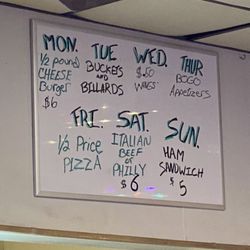 MON.
1/2 pound
CHEESE
Burger
$6
TUE
BUCKETS
AND
BILLARDS
WED.
$.50
WINGS
THUR
BOGO
Appetizers
FRI.
1/2 Price
PIZZA
SAT.
ITALIAN
BEEF
or
PHILLY
$6
SUN.
HAM
SANDWICH
$5